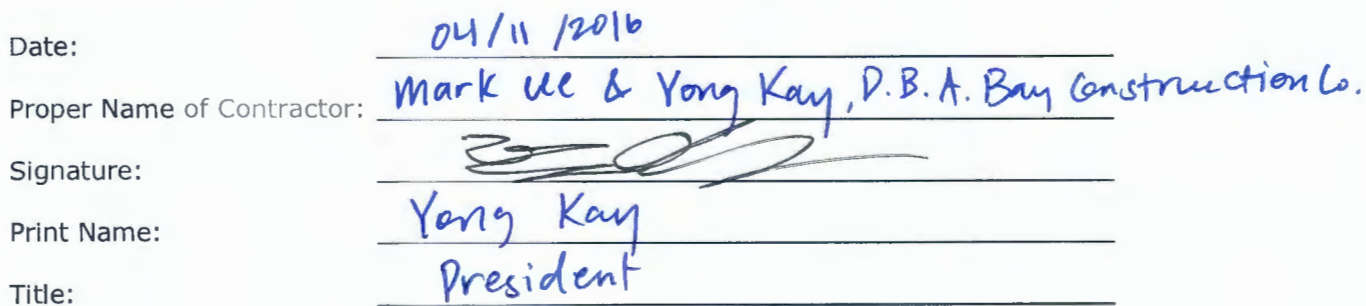 Date: 04/11/2016
Proper Name of Contractor: Mark Lee & Yong Kay, D.B.A. Bay Construction Co.
Signature:
Print Name: Yong Kay
Title: President